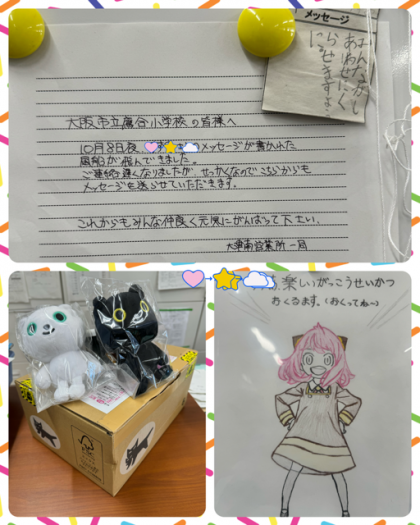 メッセージ
大阪市立鷹合小学校の皆様へ
10月8日夜、メッセージが書かれた
風船が飛んできました。
ご連絡が遅くなりましたが、せっかくなのでこちらからも
メッセージを送らせていただきます。
これからもみんな仲良く元気にがんばって下さい。
営業所一同
楽しいがっこうせいかつ
おくるます。(おくってねー)
FSC